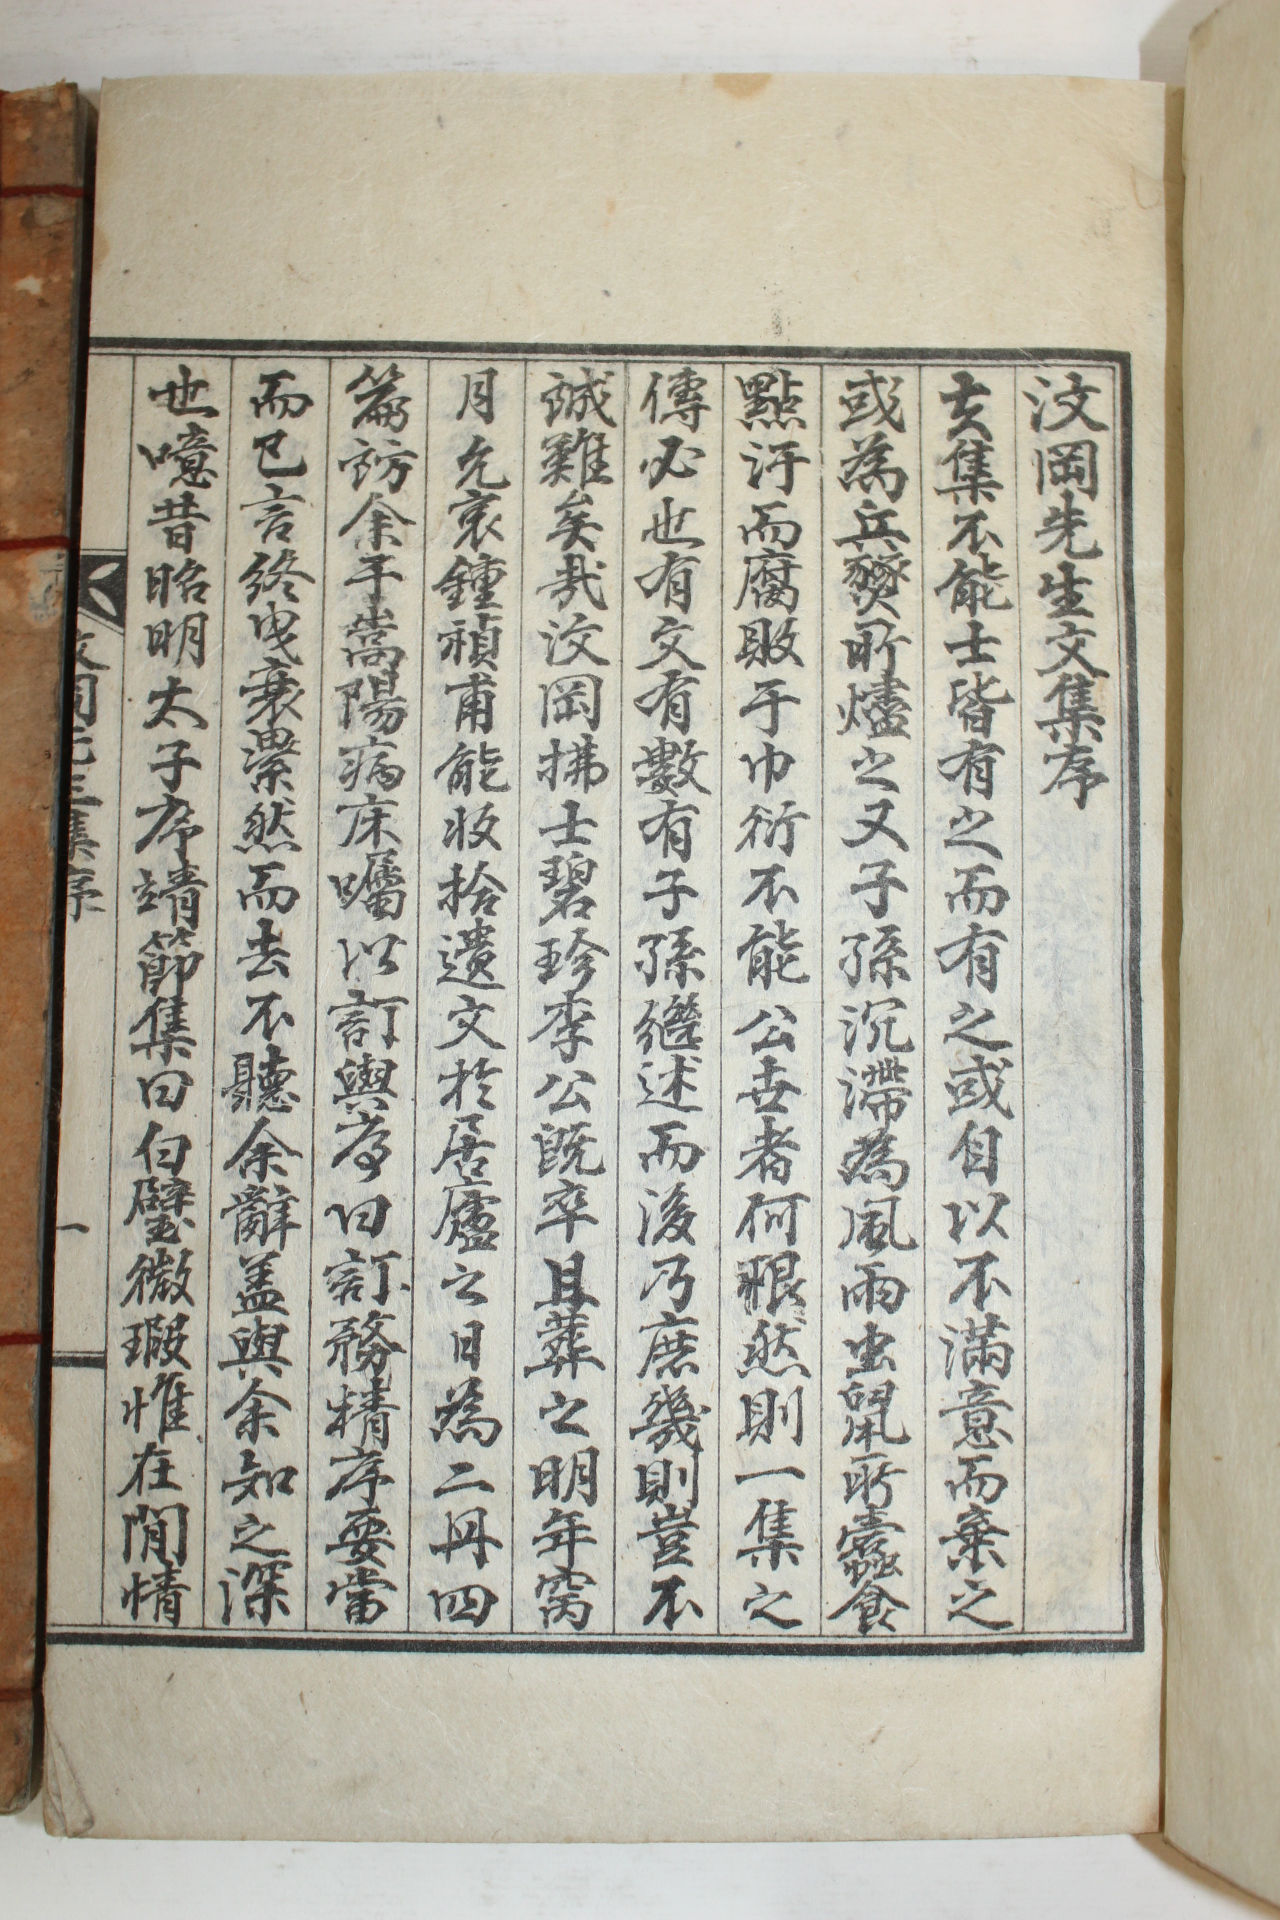 汶岡先生文集序
夫集不能士皆有之而有之或自以不滿意而棄之
或為兵燹所燼之又子孫沉滯為風雨虫鼠所蠹食
點汙而腐敗于巾衍不能公世者何限然則一集之
傳必也有文有數有子孫繼述而後乃庶幾則豈不
誠難矣哉汶岡拂士碧珍李公旣卒且葬之明年窩
月允哀鍾禎甫能收拾遺文於居廬之日為二冊四
篇訪余于嵩陽病床囑以訂與序曰訂務精序要當
而已言終曳衰漯然而去不聽余辭盖與余知之深
也噫昔昭明太子序靖節集曰白璧微瑕惟在閒情
文岡先生集序
一